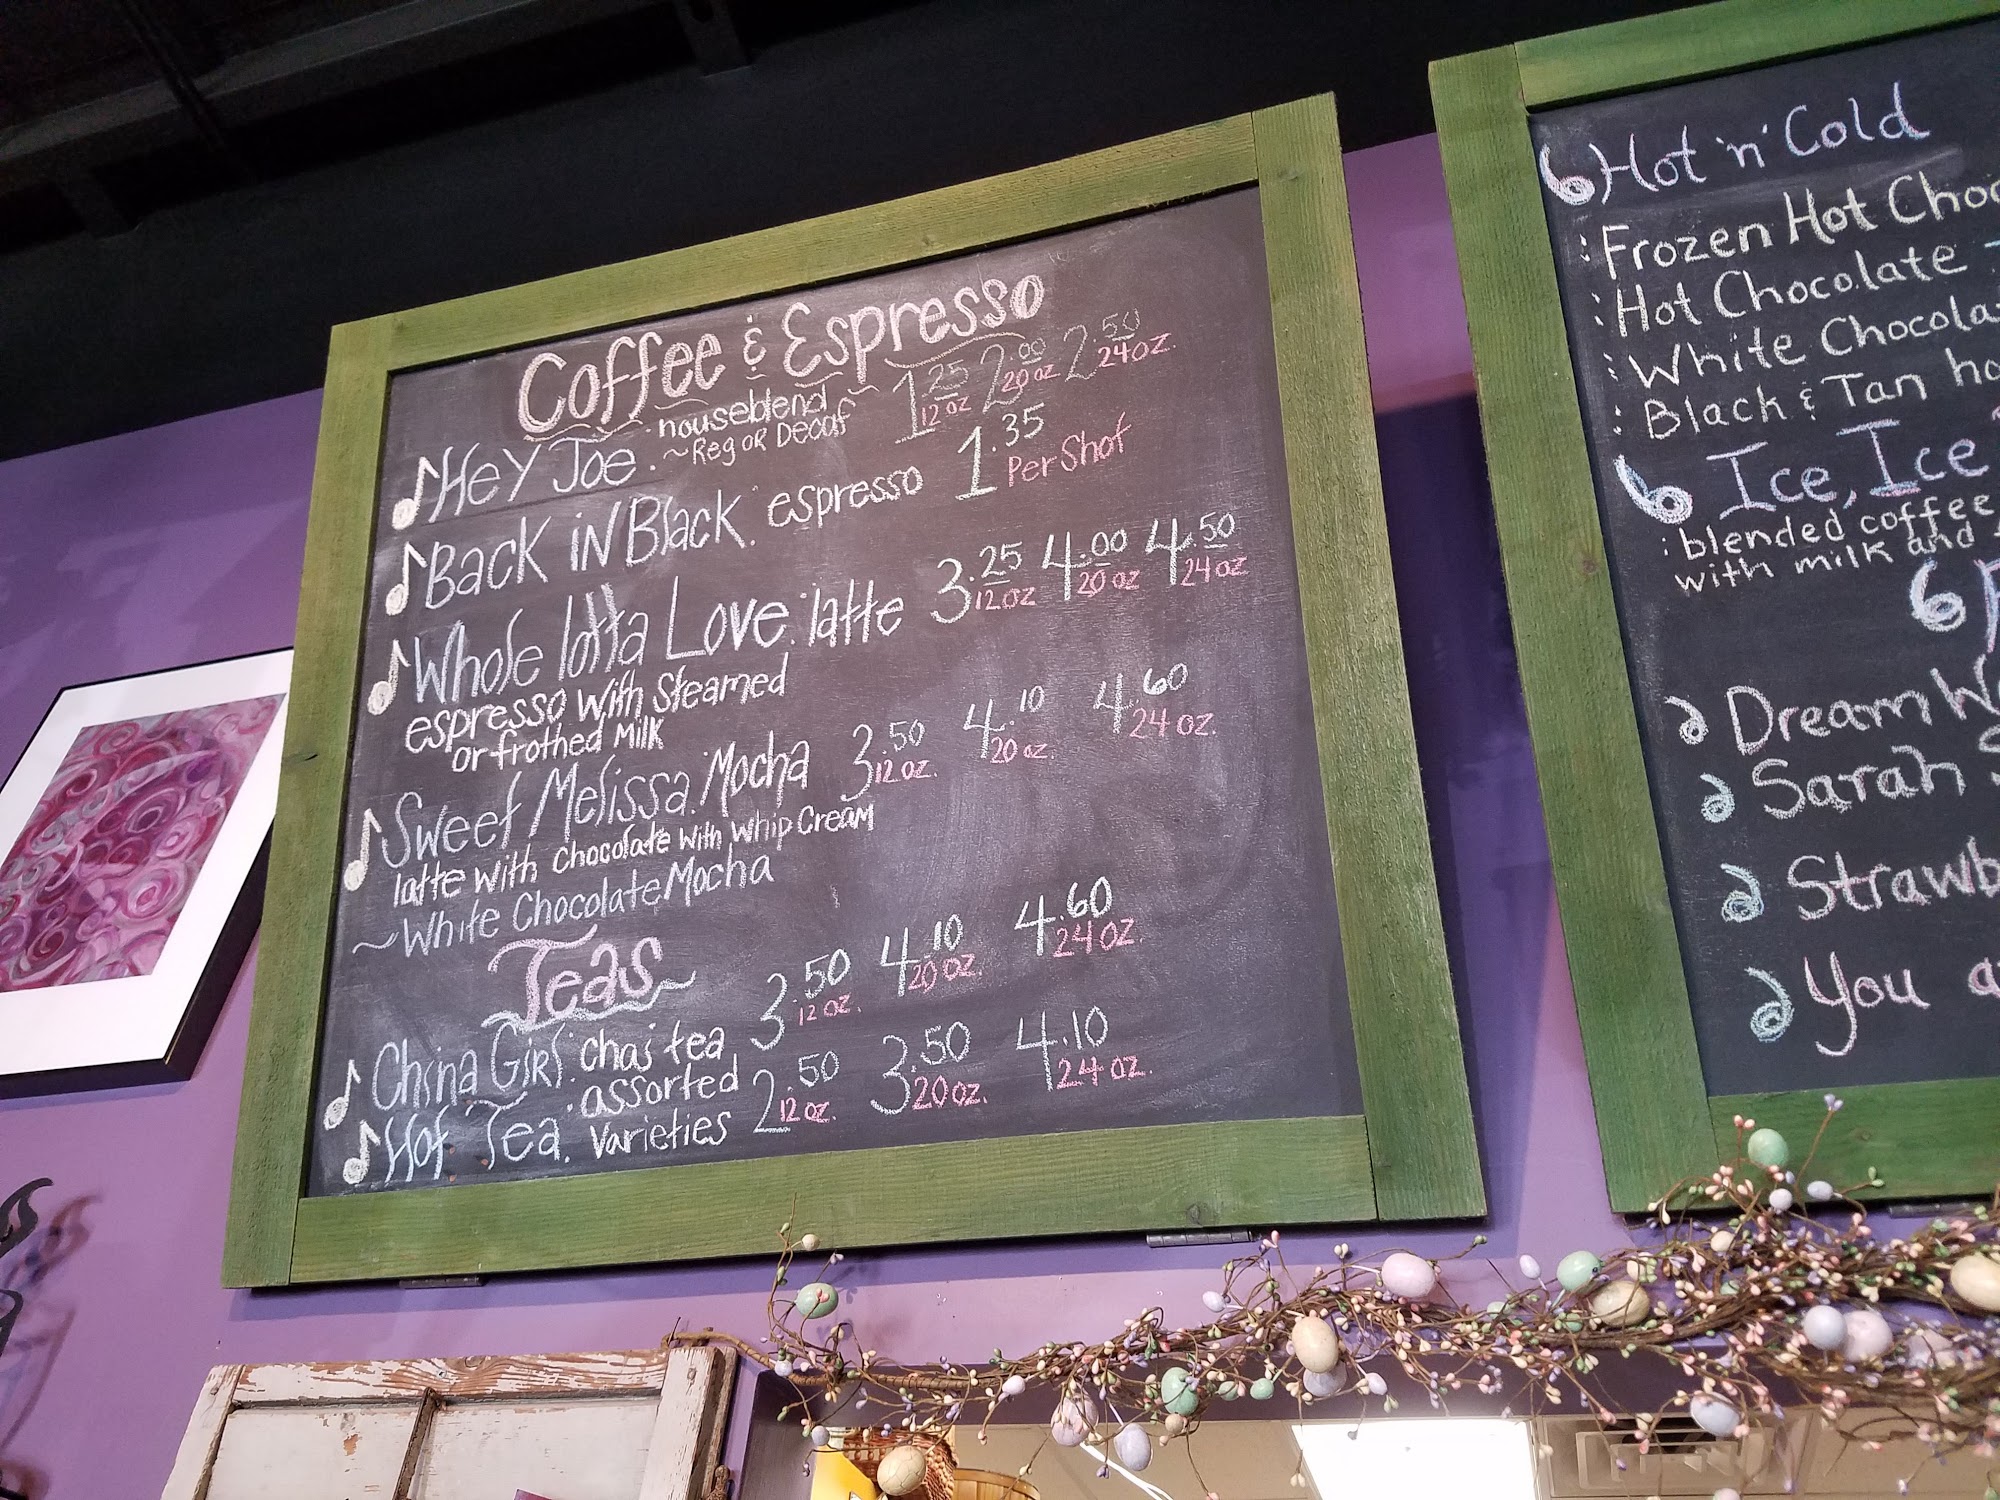 Coffee & Espresso
Hey Joe. houseblend ~Reg or Decaf 1.25 12oz 2.00 20oz 2.50 24oz
Back in Black. espresso 1.35 Per Shot
Whole lotta Love. latte 3.25 12oz 4.00 20oz 4.50 24oz
espresso with steamed
or frothed Milk
Sweet Melissa. Mocha 3.50 12oz. 4.10 20oz. 4.60 24oz.
latte with chocolate with whip cream
~White Chocolate Mocha
Teas
China Girl. chai tea 3.50 12oz. 4.10 20oz. 4.60 24oz.
Hot Tea. assorted varieties 2.50 12oz. 3.50 20oz. 4.10 24oz.
Hot 'n' Cold
: Frozen Hot
: Hot Chocolate
: White
: Black & Tan
Ice, Ice
: blended coffee
with milk and
Dream
Sarah
You